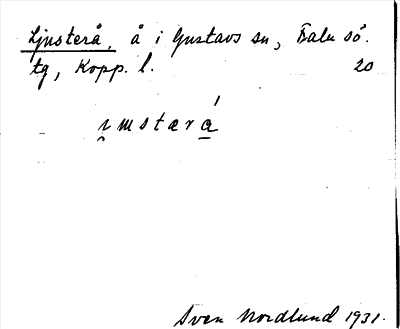 Ljusterå, å i Gustavs sn, Falu sö.
tg, Kopp. l. 20
Sven Nordlund 1931.